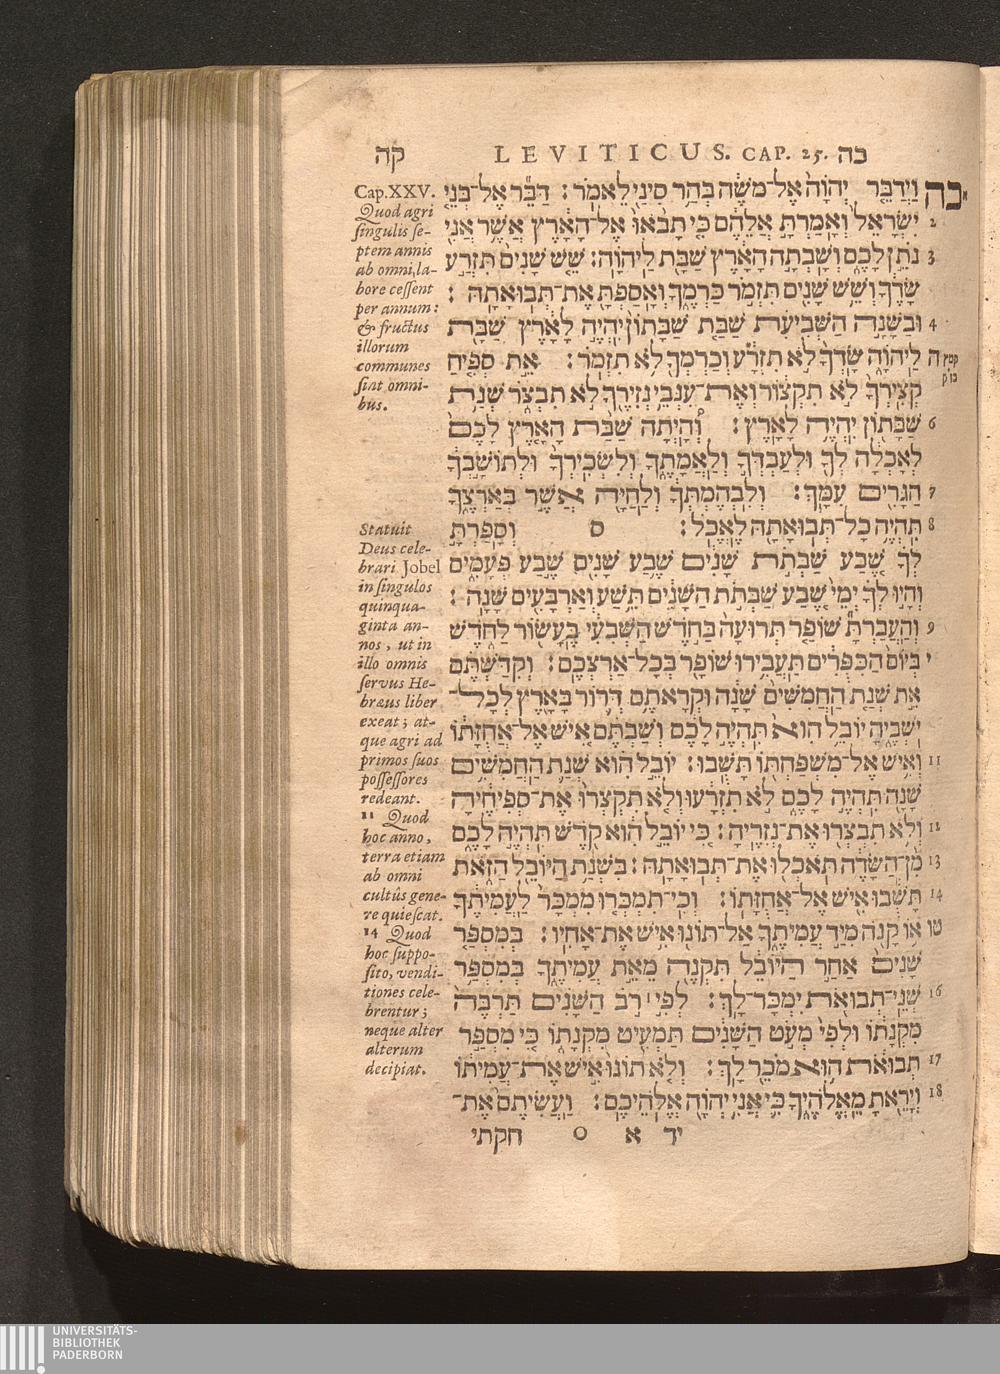 קה LEVITICUS. CAP. 25. כה
Cap. XXV.
Quod agri
singulis se-
ptem annis
ab omni, la-
bore cessent
per annum:
& fructus
illorum
communes
siat omni-
bus.
Statuit
Deus cele-
brari Jobel
in singulos
quinqua-
ginta an-
nos, ut in
illo omnis
servus He-
bræus liber
exeat; at-
que agri ad
primos suos
possessores
redeant.
11 Quod
hoc anno,
terra etiam
ab omni
cultûs gene-
re quiescat.
14 Quod
hoc suppo-
sito, vendi-
tiones cele-
brentur;
neque alter
alterum
decipiat.
כה וַיְדַבֵּר יְהוָֹה אֶל־מֹשֶׁה בְּהַר סִינַי לֵאמֹר׃ דַּבֵּר אֶל־בְּנֵי
2 יִשְׂרָאֵל וְאָמַרְתָּ אֲלֵהֶם כִּי תָבֹאוּ אֶל־הָאָרֶץ אֲשֶׁר אֲנִי
3 נֹתֵן לָכֶם וְשָׁבְתָה הָאָרֶץ שַׁבָּת לַיהוָֹה׃ שֵׁשׁ שָׁנִים תִּזְרַע
שָׂדֶךָ וְשֵׁשׁ שָׁנִים תִּזְמֹר כַּרְמֶךָ וְאָסַפְתָּ אֶת־תְּבוּאָתָהּ׃
4 וּבַשָּׁנָה הַשְּׁבִיעִת שַׁבַּת שַׁבָּתוֹן יִהְיֶה לָאָרֶץ שַׁבָּת
ה לַיהוָֹה שָׂדְךָ לֹא תִזְרָע וְכַרְמְךָ לֹא תִזְמֹר׃ אֵת סְפִיחַ
קמץ בז ק
קְצִירְךָ לֹא תִקְצוֹר וְאֶת־עִנְּבֵי נְזִירֶךָ לֹא תִבְצֹר שְׁנַת
6 שַׁבָּתוֹן יִהְיֶה לָאָרֶץ׃ וְהָיְתָה שַׁבַּת הָאָרֶץ לָכֶם
לְאָכְלָה לְךָ וּלְעַבְדְּךָ וְלַאֲמָתֶךָ וְלִשְׂכִירְךָ וּלְתוֹשָׁבְךָ
7 הַגָּרִים עִמָּךְ׃ וְלִבְהֶמְתְּךָ וְלַחַיָּה אֲשֶׁר בְּאַרְצֶךָ
8 תִּהְיֶה כָל־תְּבוּאָתָהּ לֶאֱכֹל׃ ס וְסָפַרְתָּ
לְךָ שֶׁבַע שַׁבְּתֹת שָׁנִים שֶׁבַע שָׁנִים שֶׁבַע פְּעָמִים
וְהָיוּ לְךָ יְמֵי שֶׁבַע שַׁבְּתֹת הַשָּׁנִים תֵּשַׁע וְאַרְבָּעִים שָׁנָה׃
9 וְהַעֲבַרְתָּ שׁוֹפַר תְּרוּעָה בַּחֹדֶשׁ הַשְּׁבִעִי בֶּעָשׂוֹר לַחֹדֶשׁ
י בְּיוֹם הַכִּפֻּרִים תַּעֲבִירוּ שׁוֹפָר בְּכָל־אַרְצְכֶם׃ וְקִדַּשְׁתֶּם
אֵת שְׁנַת הַחֲמִשִּׁים שָׁנָה וּקְרָאתֶם דְּרוֹר בָּאָרֶץ לְכָל־
יֹשְׁבֶיהָ יוֹבֵל הִוא תִּהְיֶה לָכֶם וְשַׁבְתֶּם אִישׁ אֶל־אֲחֻזָּתוֹ
11 וְאִישׁ אֶל־מִשְׁפַּחְתּוֹ תָּשֻׁבוּ׃ יוֹבֵל הִוא שְׁנַת הַחֲמִשִּׁים
שָׁנָה תִּהְיֶה לָכֶם לֹא תִזְרָעוּ וְלֹא תִקְצְרוּ אֶת־סְפִיחֶיהָ
12 וְלֹא תִבְצְרוּ אֶת־נְזִרֶיהָ׃ כִּי יוֹבֵל הִוא קֹדֶשׁ תִּהְיֶה לָכֶם
13 מִן־הַשָּׂדֶה תֹּאכְלוּ אֶת־תְּבוּאָתָהּ׃ בִּשְׁנַת הַיּוֹבֵל הַזֹּאת
14 תָּשֻׁבוּ אִישׁ אֶל־אֲחֻזָּתוֹ׃ וְכִי־תִמְכְּרוּ מִמְכָּר לַעֲמִיתֶךָ
טו אוֹ קָנֹה מִיַּד עֲמִיתֶךָ אַל־תּוֹנוּ אִישׁ אֶת־אָחִיו׃ בְּמִסְפַּר
שָׁנִים אַחַר הַיּוֹבֵל תִּקְנֶה מֵאֵת עֲמִיתֶךָ בְּמִסְפַּר
16 שְׁנֵי־תְבוּאֹת יִמְכָּר־לָךְ׃ לְפִי רֹב הַשָּׁנִים תַּרְבֶּה
מִקְנָתוֹ וּלְפִי מְעֹט הַשָּׁנִים תַּמְעִיט מִקְנָתוֹ כִּי מִסְפַּר
17 תְּבוּאֹת הוּא מֹכֵר לָךְ׃ וְלֹא תוֹנוּ אִישׁ אֶת־עֲמִיתוֹ
18 וְיָרֵאתָ מֵאֱלֹהֶיךָ כִּי אֲנִי יְהוָֹה אֱלֹהֵיכֶם׃ וַעֲשִׂיתֶם אֶת־
יד א ס חקתי
UNIVERSITÄTS-
BIBLIOTHEK
PADERBORN